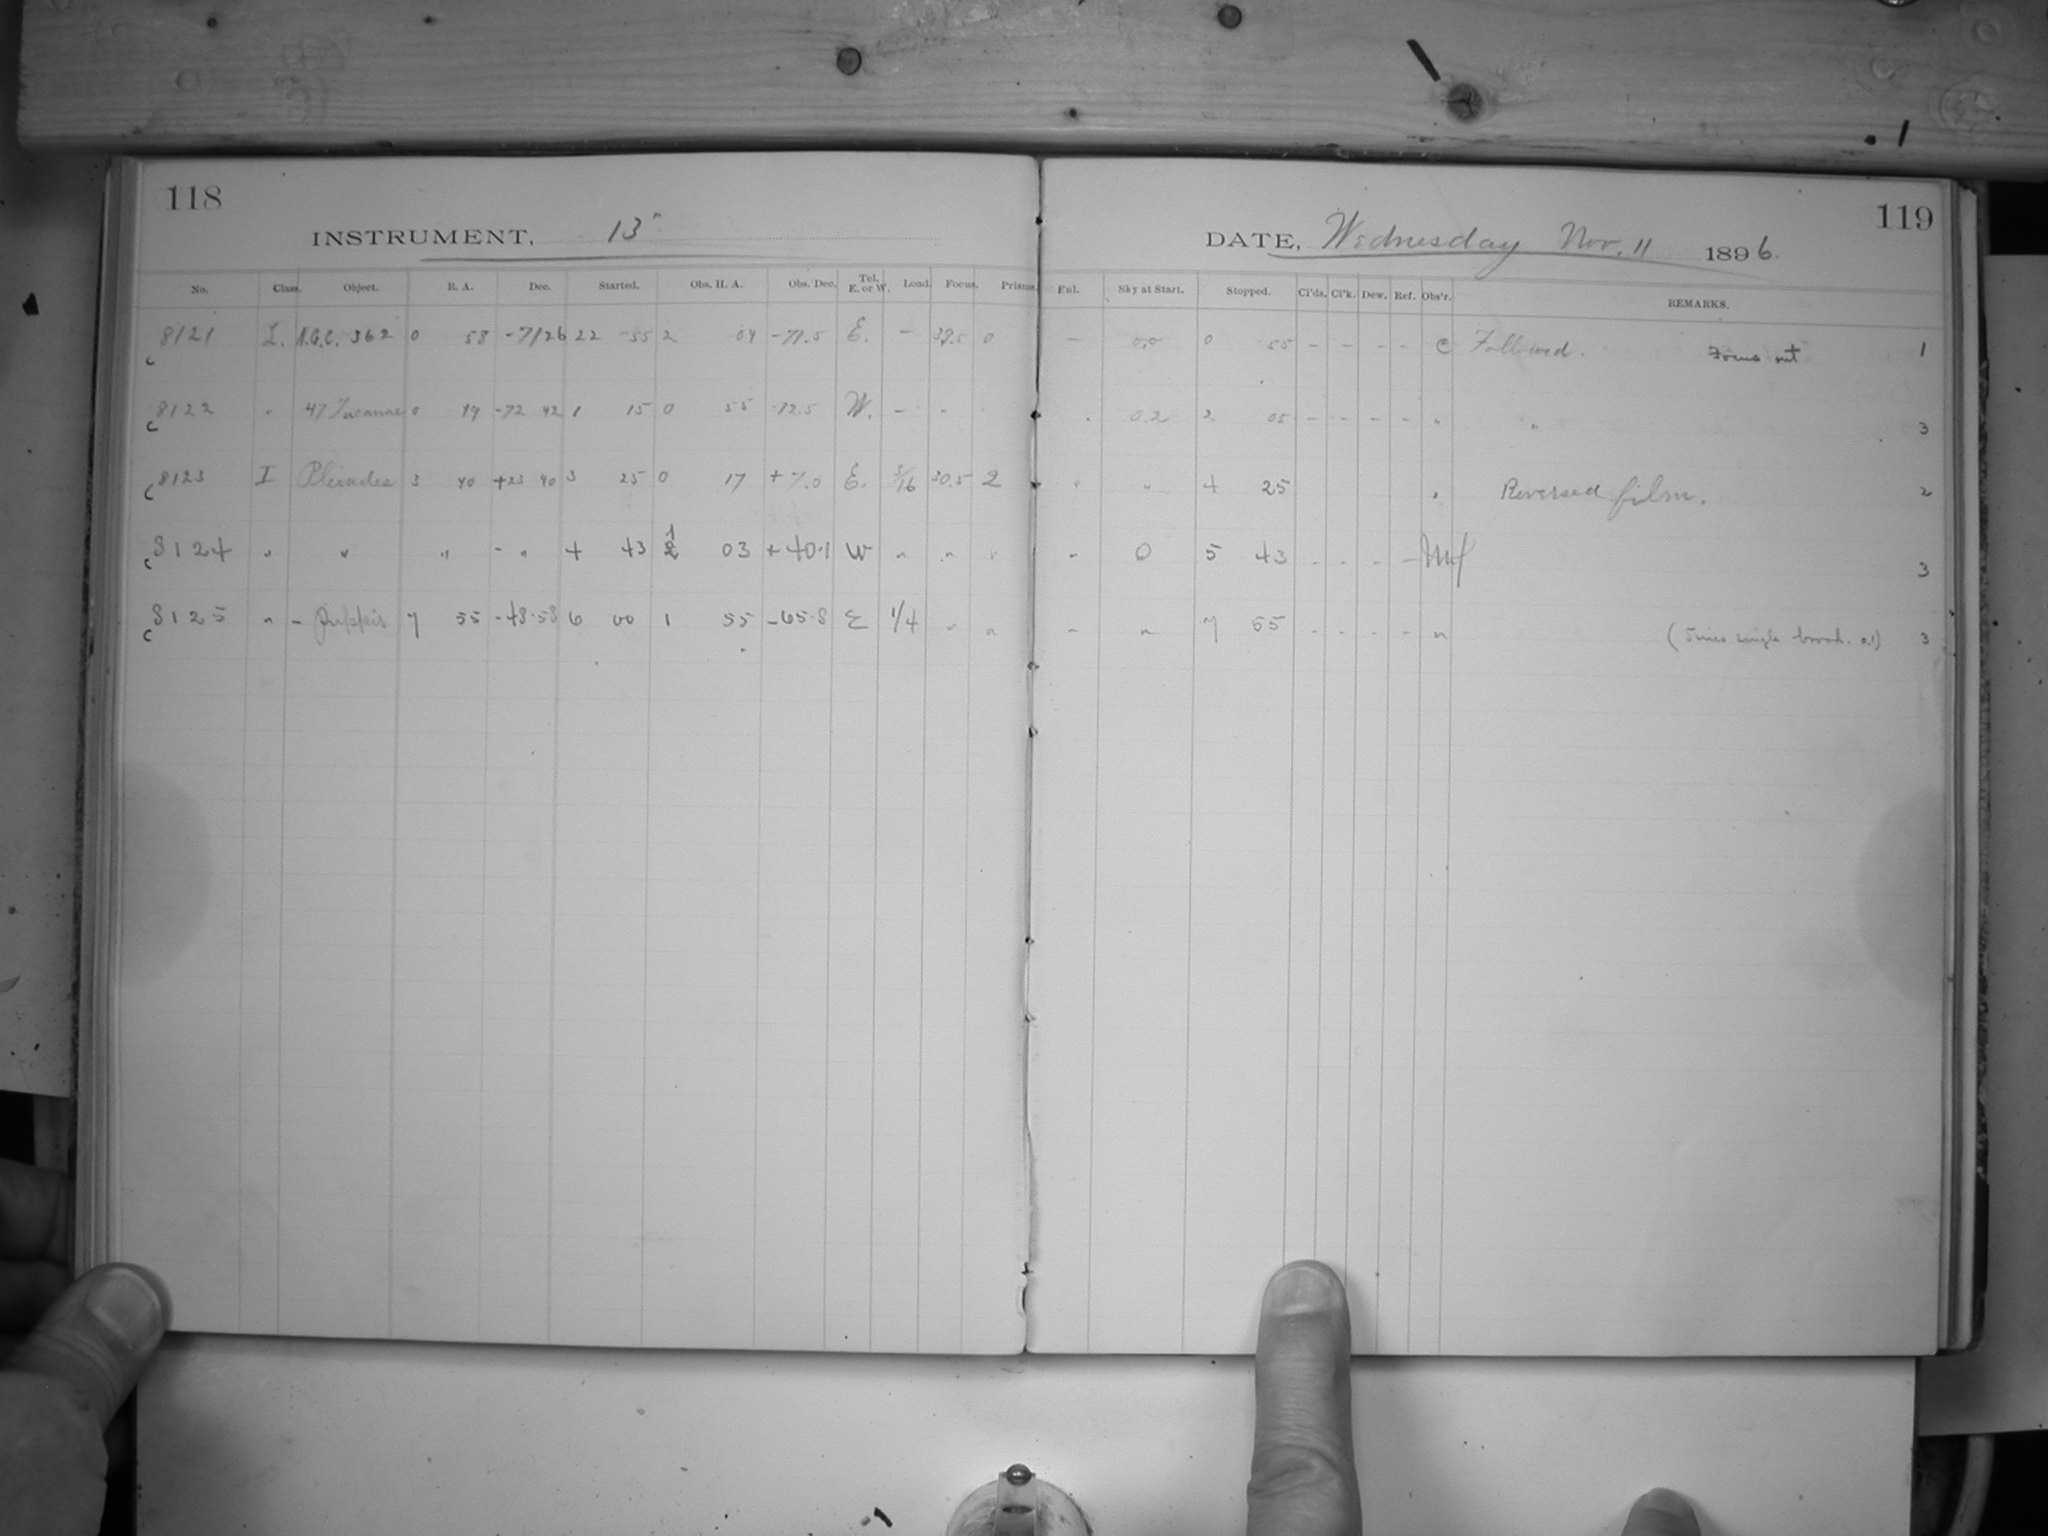 118
INSTRUMENT, 13"
No. Class. Object. R. A. Dec. Started. Obs. H. A. Obs. Dec. Tel. E. or W. Load. Focus. Prisms.
8121 L. N.G.C. 362 0 58 -71 26 22 55 2 04 -71.5 E. - 38.5 0
8122 " 47 Tucanae 0 19 -72 42 1 15 0 55 -72.5 W. - -
8123 I Pleiades 3 40 +23 40 3 25 0 17 +7.0 E. 3/16 30.5 2
8124 " " " - " 4 43 1 03 +40.1 W " " "
8125 " - Puppis 7 55 -48.58 6 00 1 55 -65.8 E 1/4 " "
119
DATE, Wednesday Nov. 11 1896.
Enl. Sky at Start. Stopped. Cl'ds. Cl'k. Dew. Ref. Obs'r. REMARKS.
- 0.0 0 55 - - - - C Followed. Focus out 1
0.2 2 05 - - - - " " 3
" " 4 25 " Reversed film. 2
- 0 5 43 - - - - 3
- " 7 55 - - - - " (5 lines single broad. 0.1) 3